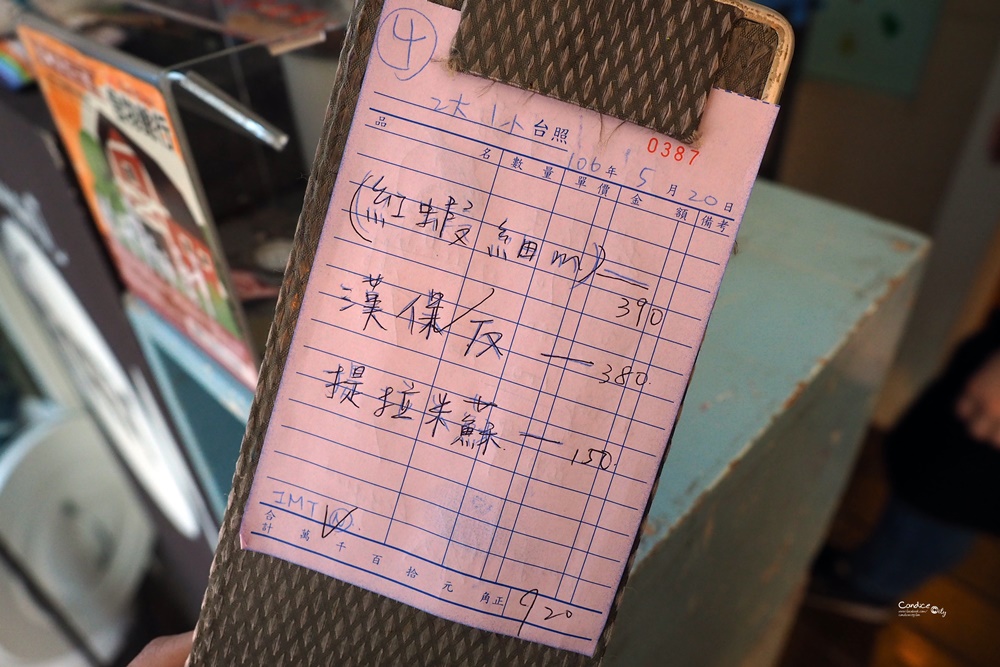 4
2大 1小 台照
0387
106年 5月 20日
品名 數量 單價 金額 備考
(紅蝦細m) — 390
漢保/反 — 380.
提拉米蘇 — 150.
IMT
合計 萬 千 百 拾 元 角正 920
Candice City